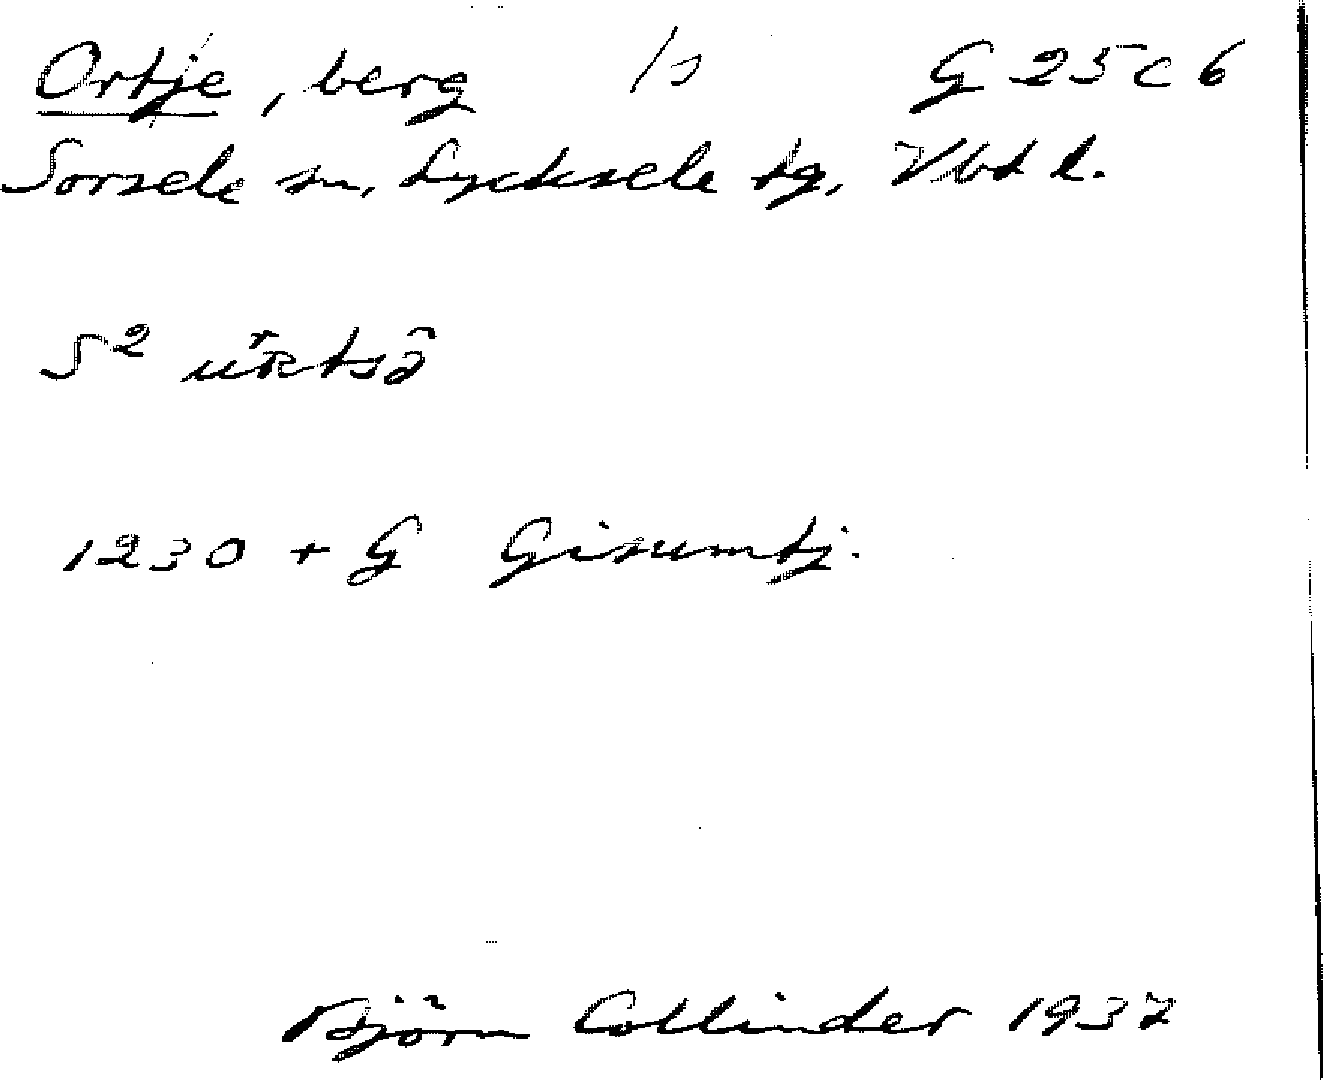 Ortje, berg /s G 25 c 6
Sorsele sn, Lycksele tg, Vbd l.
S²
1230 + G Gisumtj.
Björn Collinder 1937